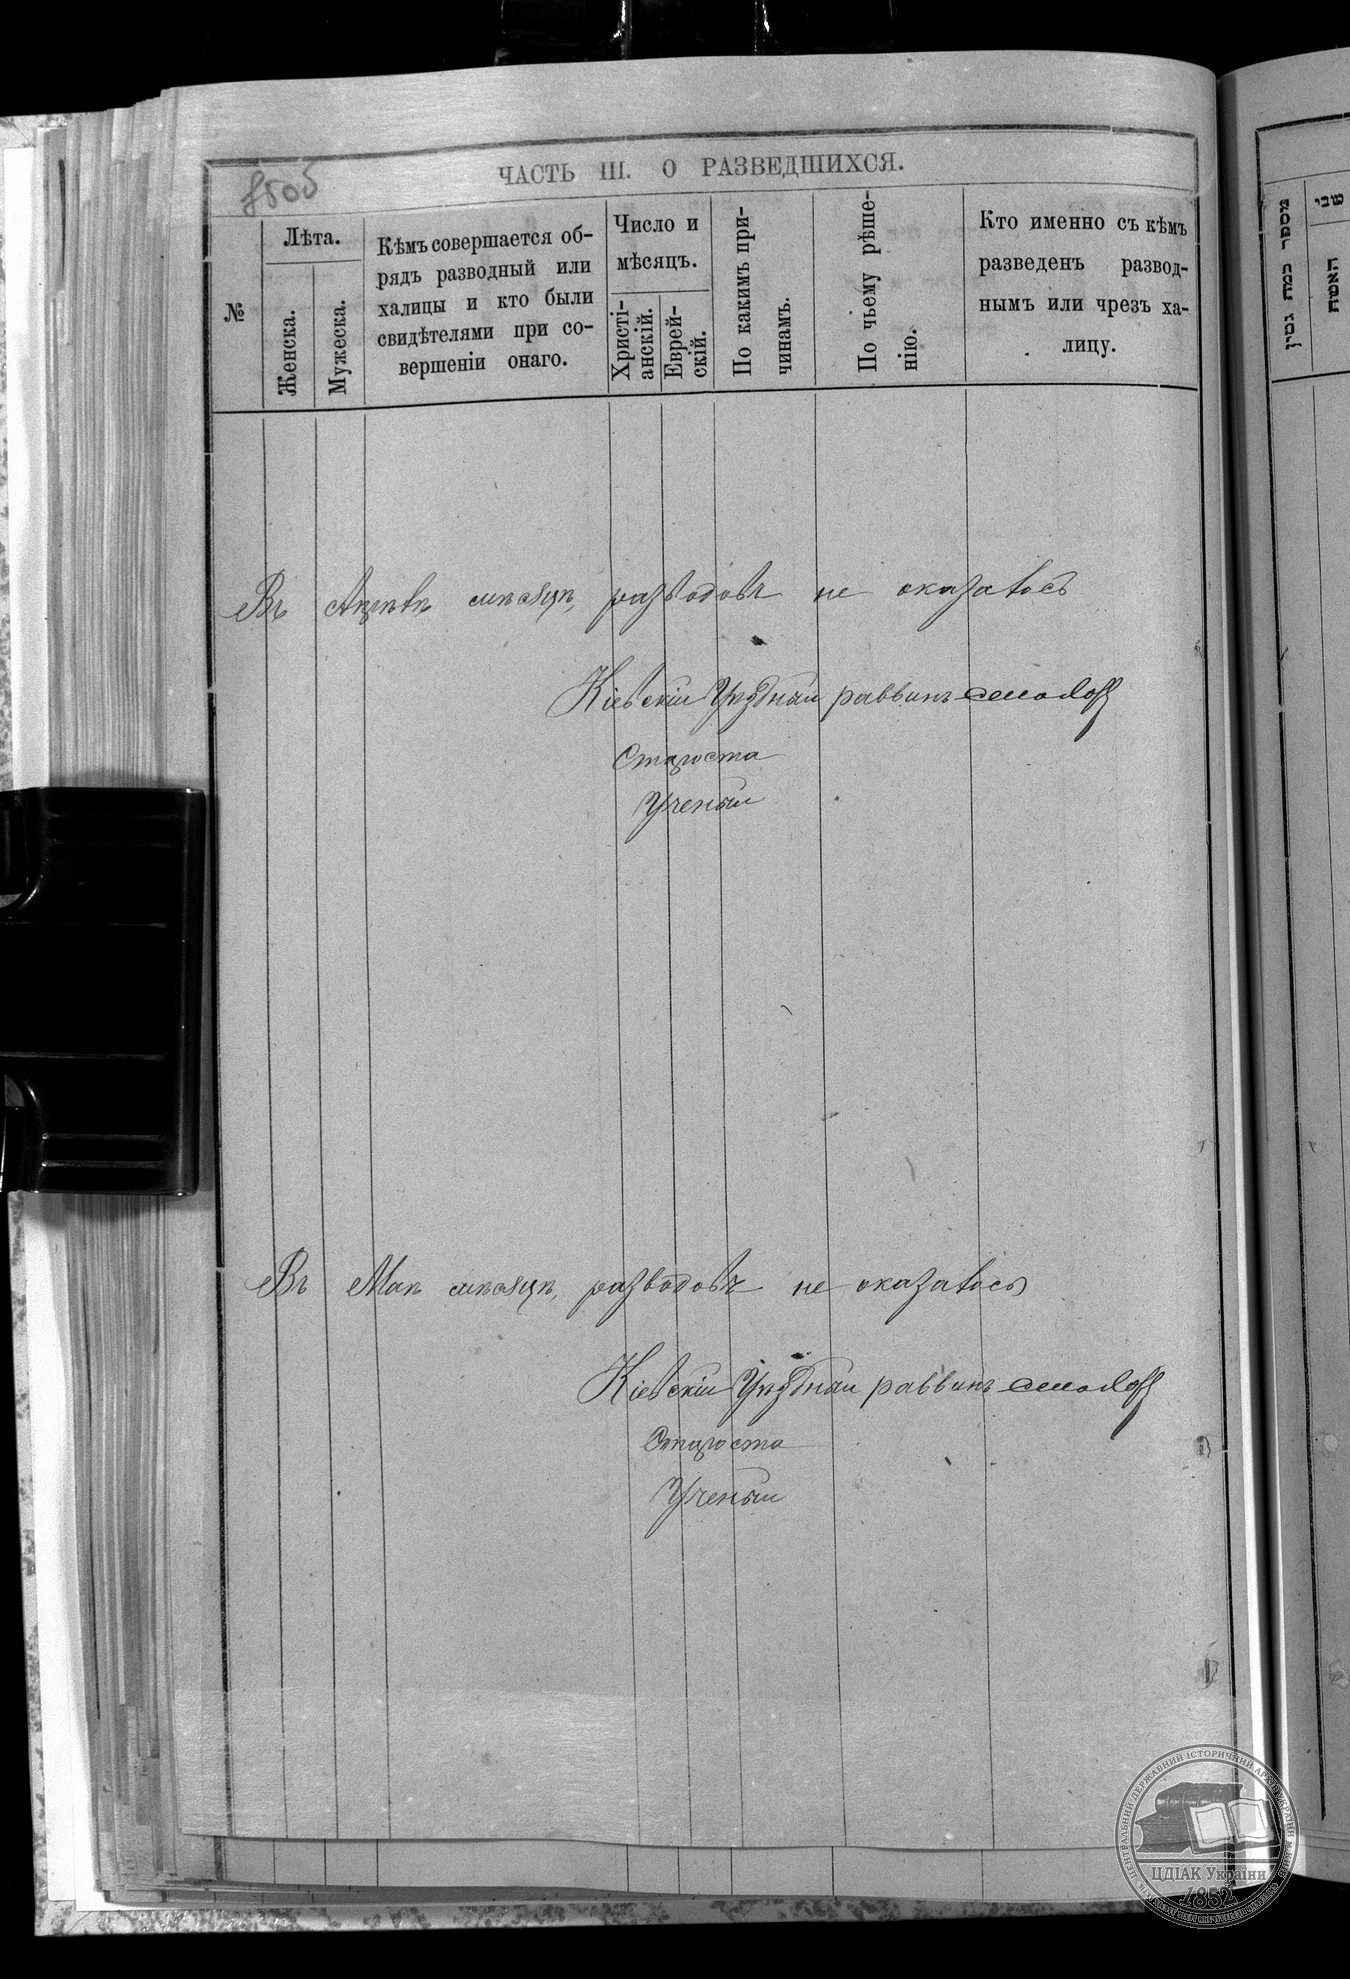 ЧАСТЬ III. О РАЗВЕДШИХСЯ.
№
Лѣта.
Женска.
Мужеска.
Кѣмъ совершается об-
рядъ разводный или
халицы и кто были
свидѣтелями при со-
вершеніи онаго.
Число и
мѣсяцъ.
Христі-
анскій.
Еврей-
скій.
По какимъ при-
чинамъ.
По чьему рѣше-
нію.
Кто именно съ кѣмъ
разведенъ развод-
нымъ или чрезъ ха-
лицу.
Въ Апрѣлѣ мѣсяцѣ, разводовъ не оказалось
Кіевскій Уѣздный раввинъ
Староста
Ученый
Въ Маѣ мѣсяцѣ, разводовъ не оказалось
Кіевскій Уѣздный раввинъ
Староста
Ученый
מספר כמה גטין
שני
האשה
ЦЕНТРАЛЬНИЙ ДЕРЖАВНИЙ ІСТОРИЧНИЙ АРХІВ УКРАЇНИ М.КИЇВ
ЦДІАК України
1852